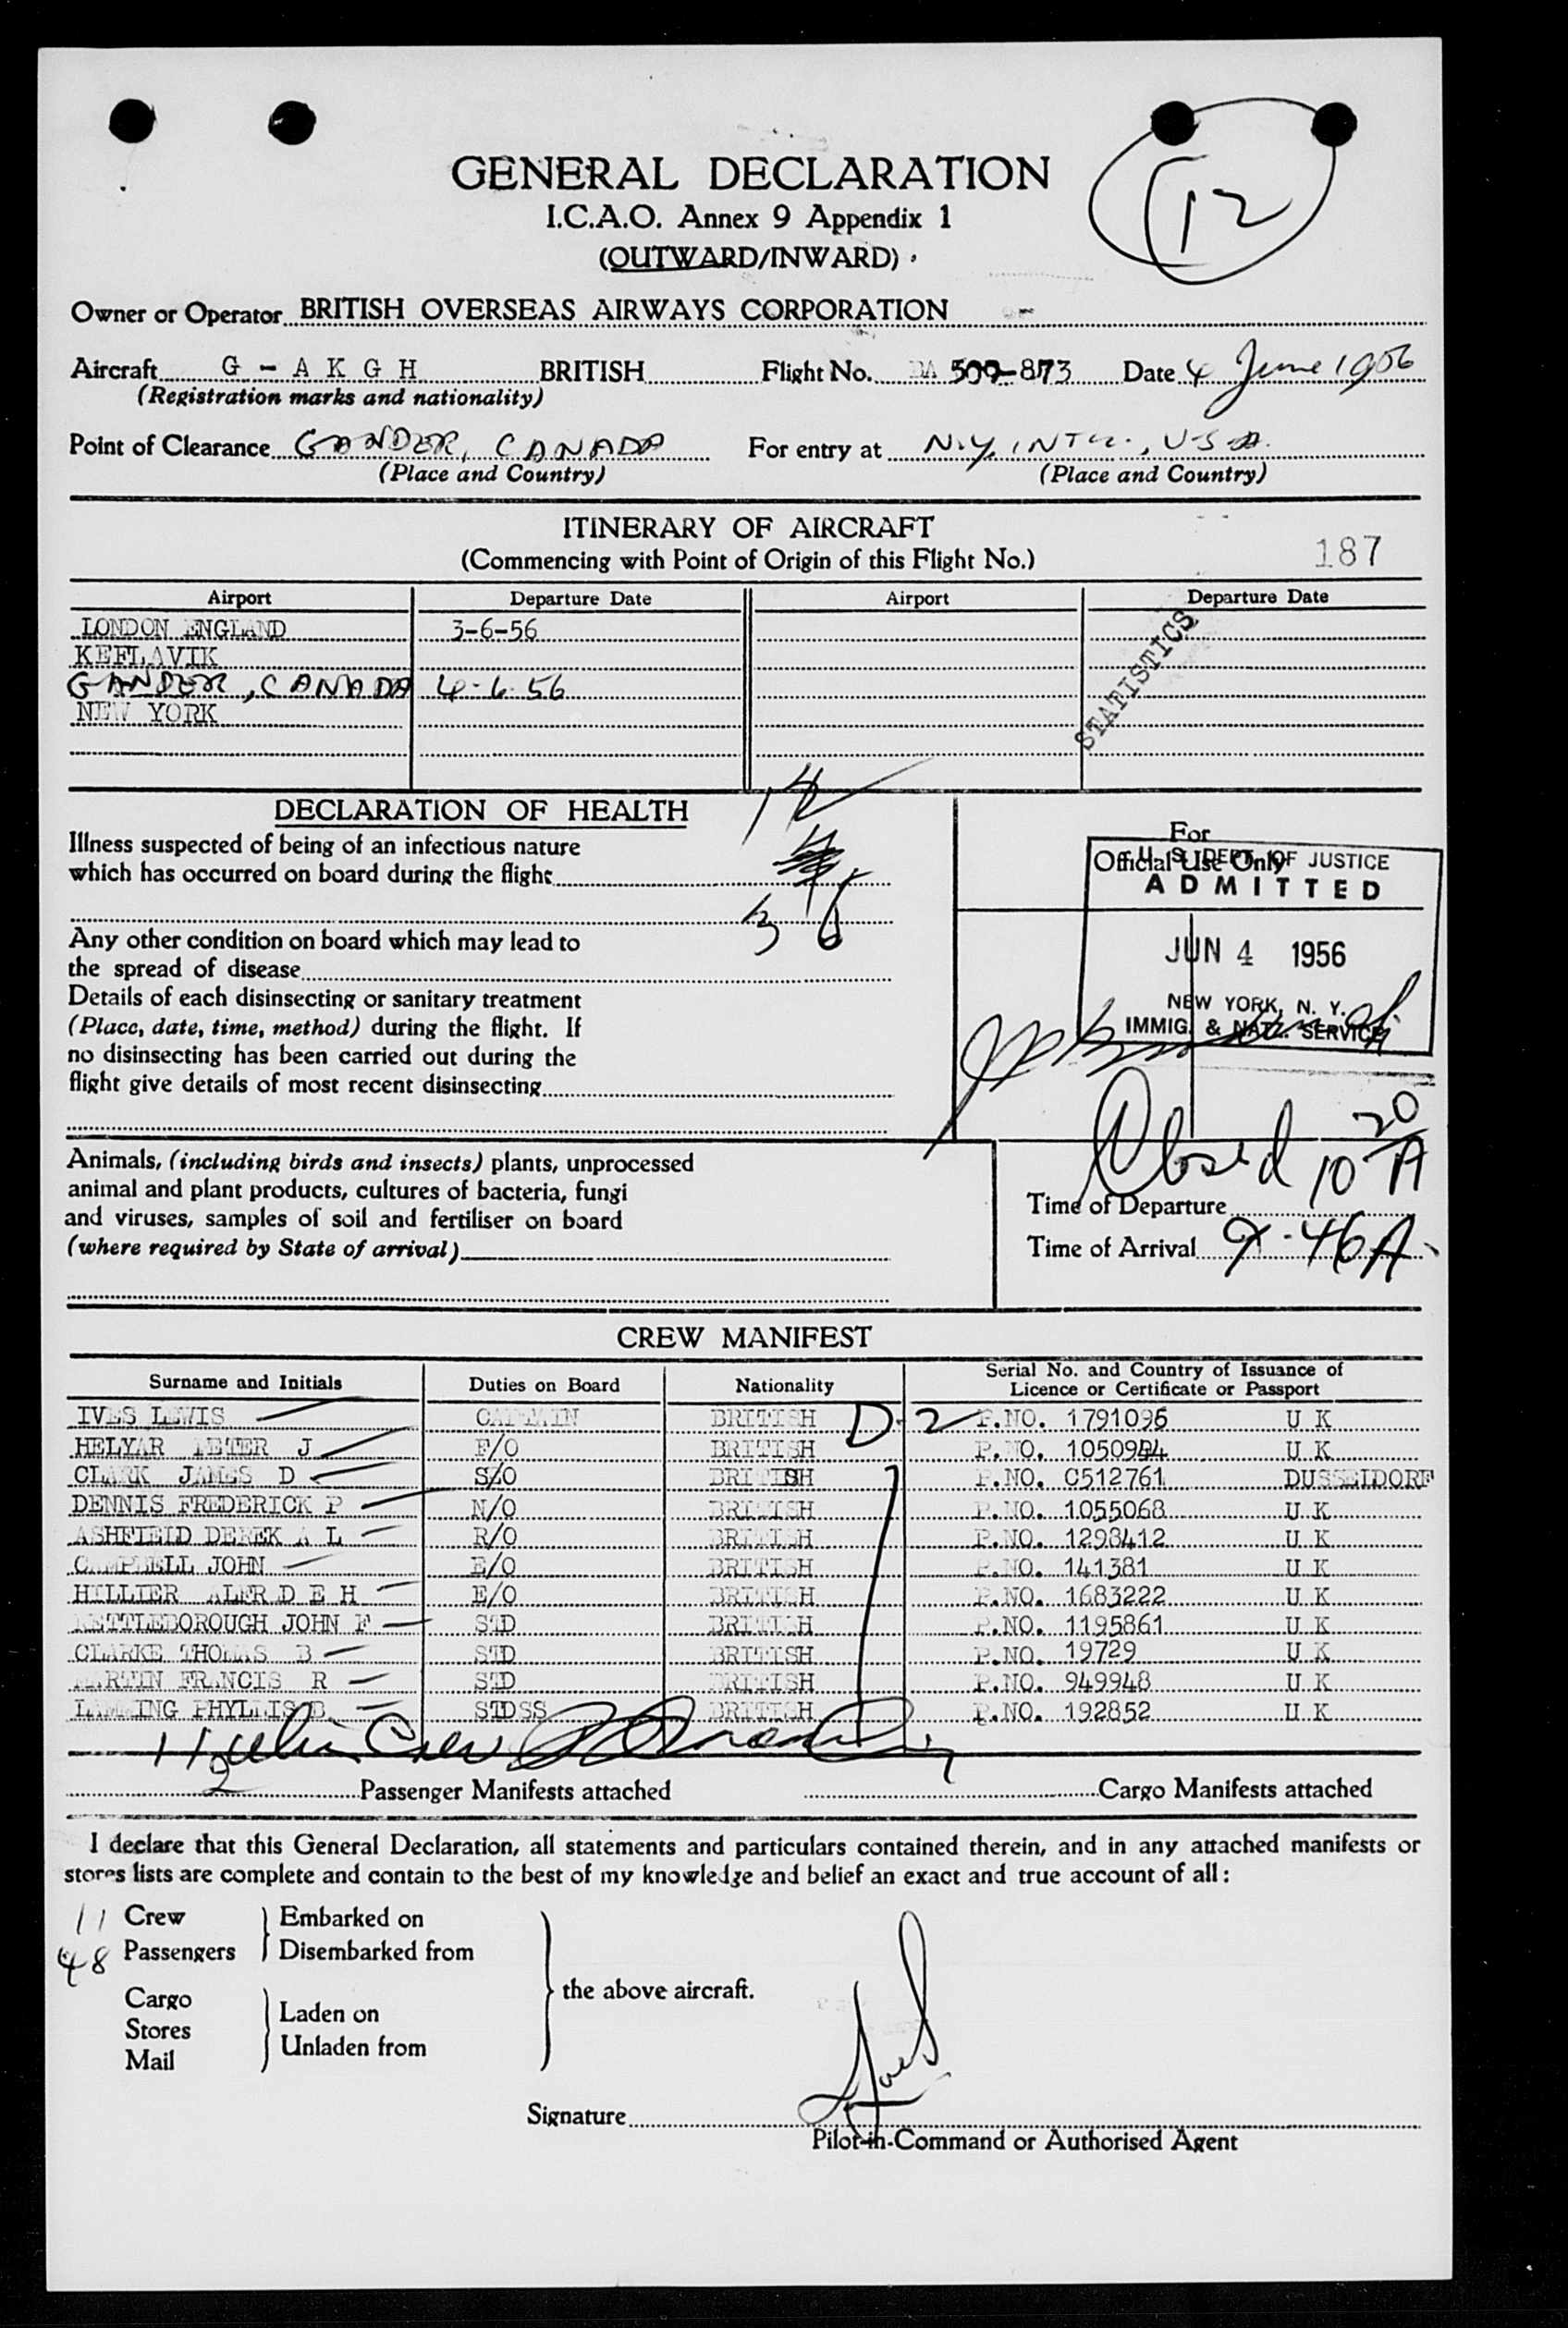 12
GENERAL DECLARATION
I.C.A.O. Annex 9 Appendix 1
(OUTWARD/INWARD)
Owner or Operator BRITISH OVERSEAS AIRWAYS CORPORATION
Aircraft G - A K G H BRITISH Flight No. BA 509-873 Date 4 June 1956
(Registration marks and nationality)
Point of Clearance GANDER, CANADA For entry at N.Y. INTL., USA.
(Place and Country) (Place and Country)
ITINERARY OF AIRCRAFT
(Commencing with Point of Origin of this Flight No.) 187
Airport Departure Date Airport Departure Date
LONDON ENGLAND 3-6-56
KEFLAVIK
GANDER, CANADA 4-6-56
NEW YORK
STATISTICS
DECLARATION OF HEALTH
Illness suspected of being of an infectious nature
which has occurred on board during the flight
Any other condition on board which may lead to
the spread of disease
Details of each disinsecting or sanitary treatment
(Place, date, time, method) during the flight. If
no disinsecting has been carried out during the
flight give details of most recent disinsecting
12
36
For
Official Use Only
U. S. DEPT. OF JUSTICE
ADMITTED
JUN 4 1956
NEW YORK, N. Y.
IMMIG. & NATZ. SERVICE
Animals, (including birds and insects) plants, unprocessed
animal and plant products, cultures of bacteria, fungi
and viruses, samples of soil and fertiliser on board
(where required by State of arrival)
Closed 10 20 A
Time of Departure
Time of Arrival 9-46A
CREW MANIFEST
Surname and Initials Duties on Board Nationality Serial No. and Country of Issuance of
Licence or Certificate or Passport
IVES LEWIS CAPTAIN BRITISH D-2 P.NO. 1791096 U K
HELYAR PETER J F/O BRITISH P.NO. 1050944 U K
CLARK JAMES D S/O BRITISH P.NO. C512761 DUSSELDORF
DENNIS FREDERICK P N/O BRITISH P.NO. 1055068 U K
ASHFIELD DEREK A L R/O BRITISH P.NO. 1298412 U K
CAMPBELL JOHN E/O BRITISH P.NO. 141381 U K
HILLIER ALFRED E H E/O BRITISH P.NO. 1683222 U K
KETTLEBOROUGH JOHN F STD BRITISH P.NO. 1195861 U K
CLARKE THOMAS B STD BRITISH P.NO. 19729 U K
MARTIN FRANCIS R STD BRITISH P.NO. 949948 U K
PHYLLIS B STDSS BRITISH P.NO. 192852 U K
11 Crew
2 Passenger Manifests attached Cargo Manifests attached
I declare that this General Declaration, all statements and particulars contained therein, and in any attached manifests or
stores lists are complete and contain to the best of my knowledge and belief an exact and true account of all:
11 Crew Embarked on
48 Passengers Disembarked from
the above aircraft.
Cargo Laden on
Stores
Unladen from
Mail
Signature Ives
Pilot-in-Command or Authorised Agent